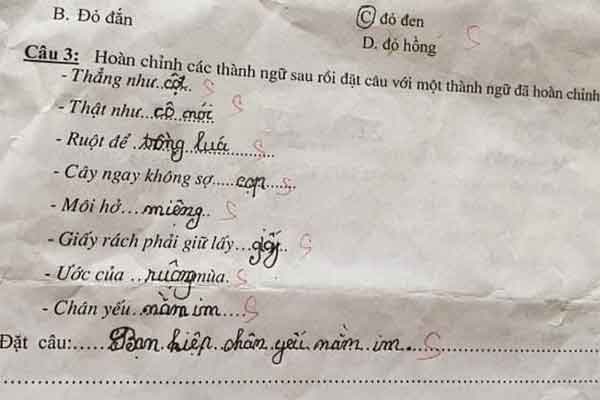 B. Đỏ đắn
C đỏ đen
D. đỏ hồng
Câu 3: Hoàn chỉnh các thành ngữ sau rồi đặt câu với một thành ngữ đã hoàn chỉnh
- Thẳng như..cột.. S
- Thật như...cô mói S
- Ruột để ..tròng luá........... S
- Cây ngay không sợ.....cọp...... S
- Môi hở...miệng.. S
- Giấy rách phải giữ lấy...giấy.. S
- Ước của ...ruộng mùa. S
- Chân yếu..nằm im.... S
Đặt câu:.....Bạn hiệp chân yếu nằm im... S